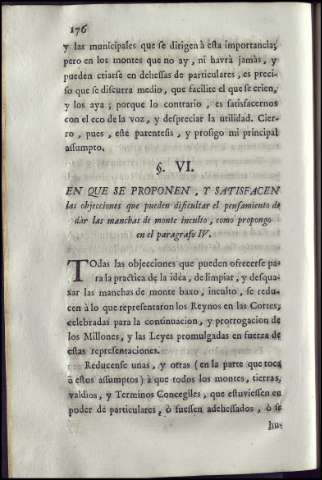 176
y las municipales que se dirigen à esta importancia;
pero en los montes que no ay, ni havrà jamàs, y
pueden criarse en dehessas de particulares, es preci-
so que se discurra medio, que facilite el que se crien,
y los aya; porque lo contrario, es satisfacernos
con el eco de la voz, y despreciar la utilidad. Cier-
ro, pues, este parentesis, y prosigo mi principal
assumpto.
§. VI.
EN QUE SE PROPONEN, Y SATISFACEN
las objecciones que pueden dificultar el pensamiento de
dàr las manchas de monte inculto, como propongo
en el paragrafo IV.
TOdas las objecciones que pueden ofrecerse pa-
ra la practica de la idèa, de limpiar, y desqua-
xar las manchas de monte baxo, inculto, se redu-
cen à lo que representaron los Reynos en las Cortes,
celebradas para la continuacion, y prorrogacion de
los Millones, y las Leyes promulgadas en fuerza de
estas representaciones.
Reducense unas, y otras (en la parte que toca
à estos assumptos) à que todos los montes, tierras,
valdios, y Terminos Concegiles, que estuviessen en
poder de particulares, ò fuessen adehessados, ò se